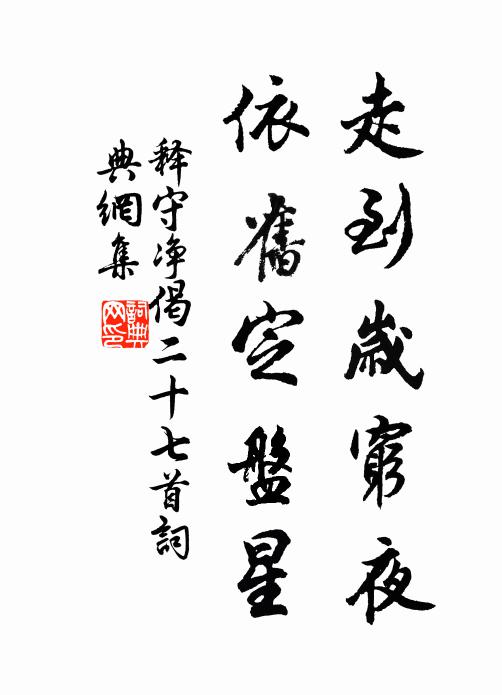 走到歲窮夜
依舊定盤星
释守净偈二十七首詞
典網集
詞典網印